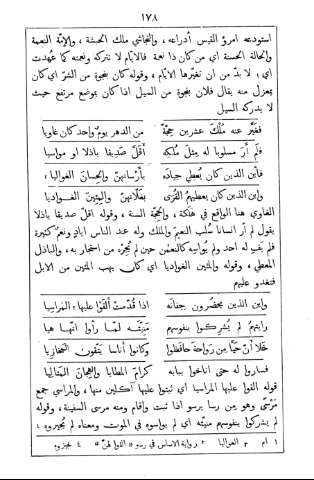 ١٧٨
استودعه امرؤ القيس أدراعه ، والنجاشي ملك الحبشة ، والامّة النعمة
والحالة الحسنة اي من كان ذا نعمة فالايام لا تتركه ونعمته كما عهدت
اي ، لا بدّ من ان تغيّرها الايّام ، وقوله كان بنجوة من الشرّ اي كان
بمعزل منه يقال فلان بنجوة من السيل اذا كان بموضع مرتفع حيث
لا يدركه السيل
فغيَّر عنه مُلكَ عشرين حِجّةً من الدهر يومٌ واحد كان غاويا
فلم أرَ مسلوبا له مثلُ ملكِه أقلَّ صديقا باذلا او مواسيا
فاين الذين كان يُعطي جيادَه بأرسانهنّ والحِسانَ الغواليا
واين الذين كان يعطيهمُ القُرى بغَلّاتهنّ والمِئينَ الغواديا
الغاوي هنا الواقع في هلكة ، والحِجّة السنة ، وقوله اقلّ صديقا باذلا
يقول لم أر انسانا سُلب النعيم والملك وله عند الناس ايادٍ ونعمٌ كثيرة
فلم يفِ له احد ولم يواسِه كالنعمٰن حين لم يُجِرْه من استجار به ، والباذل
المعطي ، وقوله والمئين الغواديا اي كان يهب المئين من الابل
فتغدو عليهم
واين الذين يحضُرون جِفانَه اذا قُدّمت ألقَوا عليها المراسيا
رايتهمُ لم يُشرِكوا بنفوسهم منيّتَه لمّا رأوا انّها هيا
خَلا أنّ حيّا من رَواحةَ حافظوا وكانوا أناسا يتّقون المخازيا
فساروا له حتى اناخوا ببابه كرامَ المطايا والهِجانَ المتاليا
قوله القوا عليها المراسيا اي ثبتوا عليها آكلين منها ، والمراسي جمع
مَرْسًى وهو من رسا يرسو اذا ثبت واقام ومنه مرسى السفينة ، وقوله
لم يشركوا بنفوسهم منيّته اي لم يواسوه في الموت ومعناه لم يجيروه